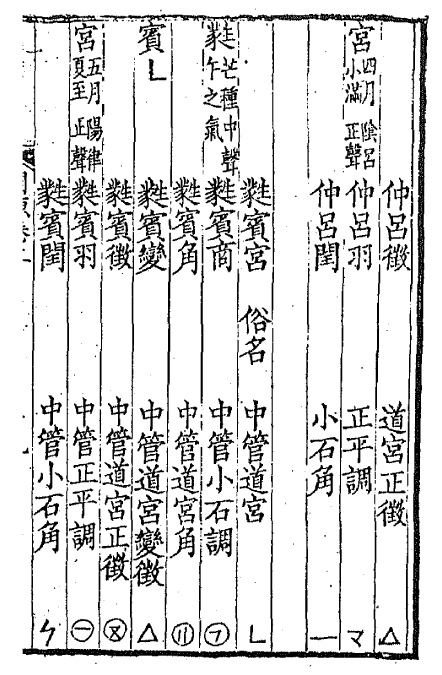 仲呂徵 道宮正徵 △
宮 四月 陰呂 小滿 正聲 仲呂羽 正平調 マ
仲呂閏 小石角 一
蕤賓宮 俗名 中管道宮 ㄴ
蕤 芒種中聲 午之氣 蕤賓商 中管小石調 ㋫
蕤賓角 中管道宮角
賓ㄴ 蕤賓變 中管道宮變徵 △
蕤賓徵 中管道宮正徵
宮 五月陽律 夏至 正聲 蕤賓羽 中管正平調 ㊀
蕤賓閏 中管小石角 ㄣ